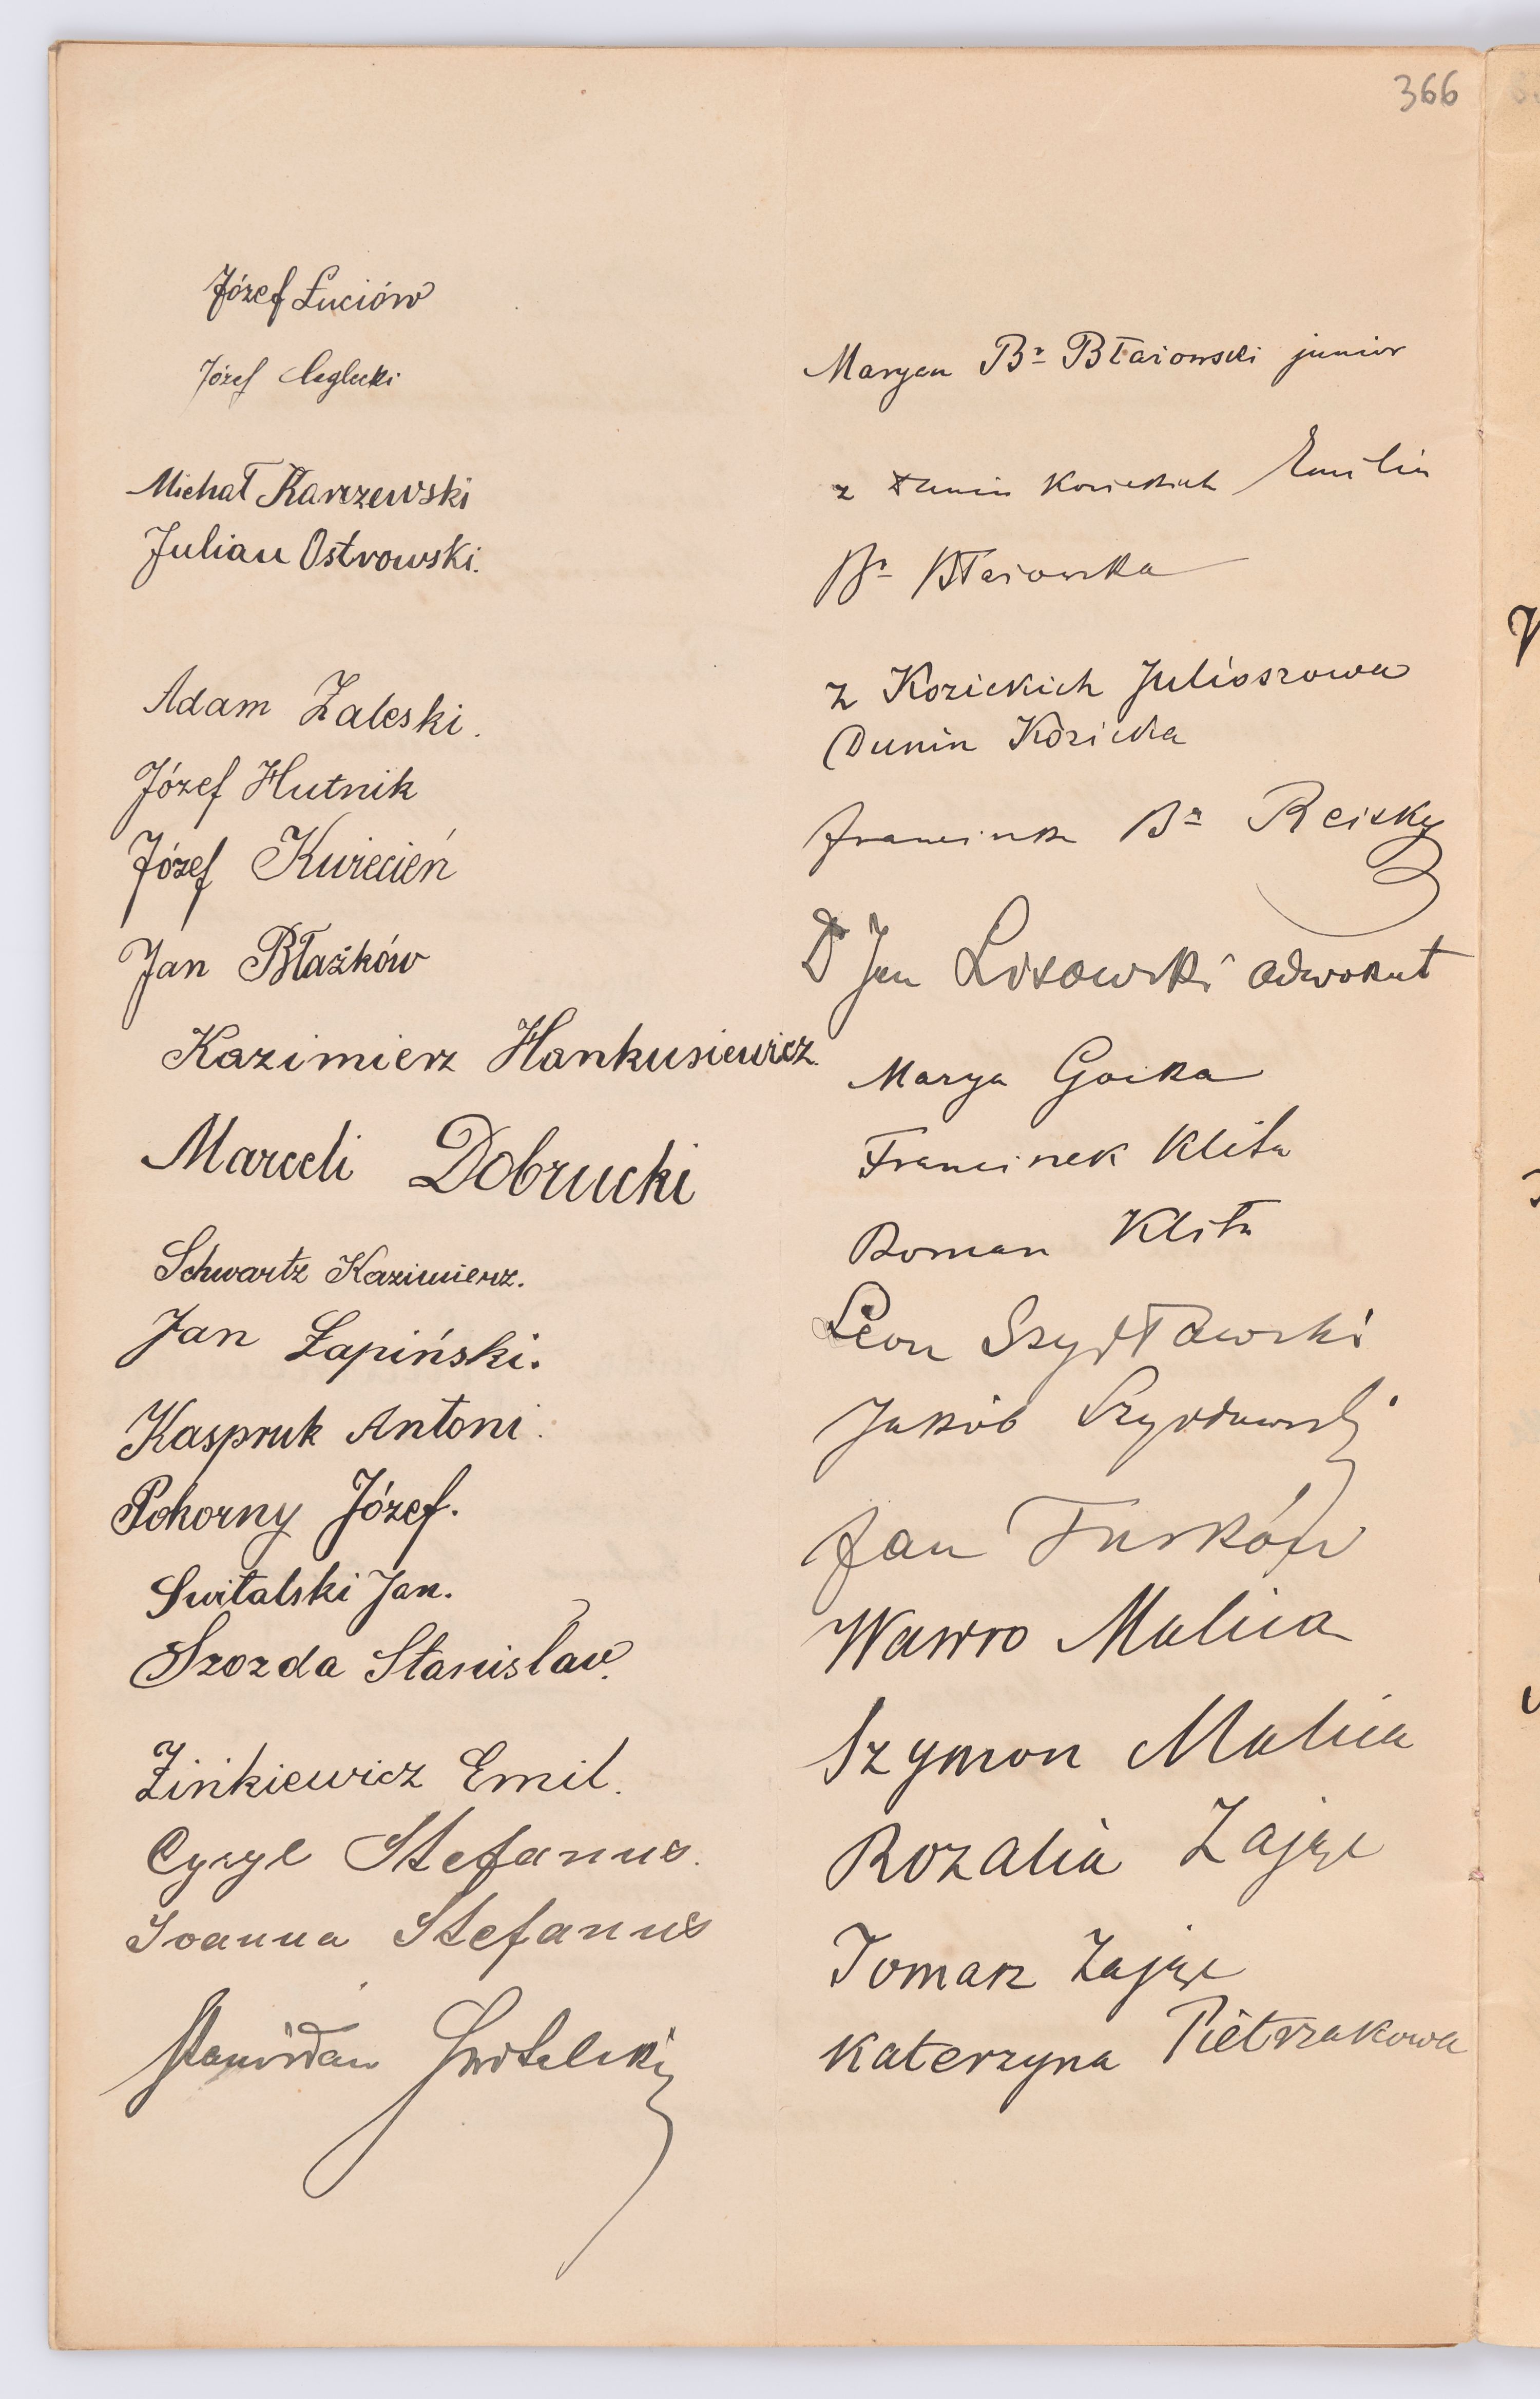 366
Józef Łuciów
Józef Ceglecki
Michał Karczewski
Julian Ostrowski.
Adam Zaleski.
Józef Hutnik
Józef Kwiecień
Jan Błażków
Kazimierz Hankusiewicz.
Marceli Dobrucki
Schwartz Kazimierz.
Jan Łapiński.
Kaspruk Antoni.
Pohorny Józef.
Switalski Jan.
Szozda Stanislav.
Zińkiewicz Emil.
Cyryl Stefanus.
Joanna Stefanus
Stanisław Switalski
Maryan Br Błażowski junior
z Dunin Kozickich Emilia
Br Błażowska
z Kozickich Juliuszowa
Dunin Kozicka
Franciszek Br Reisky
Dr Jan Lisowski adwokat
Marya Gocka
Franciszek Klita
Roman Klita
Leon Szydłowski
Jakób Szydłowski
Jan Turków
Wawro Malica
Szymon Malica
Rozalia Zając
Tomasz Zając
Katerzyna Pietrzakowa